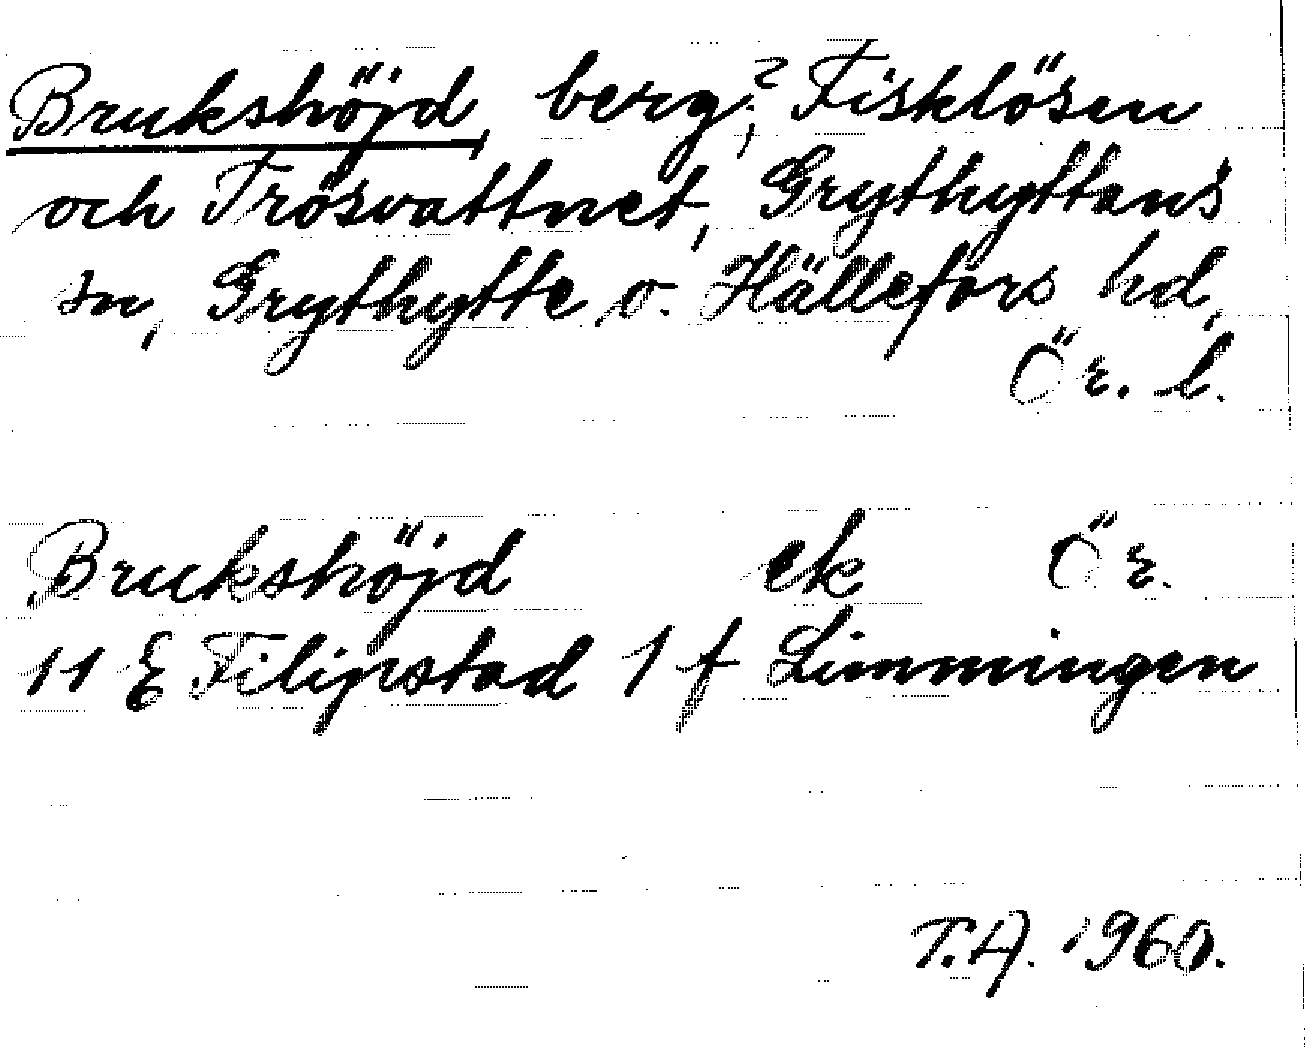 Brukshöjd, berg?, Fisklösen
och Trösvattnet, Grythyttans
sn, Grythytte o. Hällefors hd,
Ör. l.
Brukshöjd ek Ör.
11 E Filipstad 1 f Limmingen
T.A. 1960.